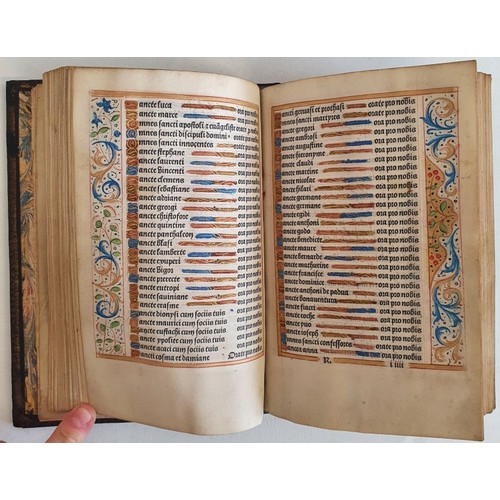 ancte luca ora pro nobis
ancte marce ora pro nobis
mnes sancti apostoli & euãgeliste orate
mnes sancti discipuli domini orate
mnes sancti innocentes orate
ancte stephane ora pro nobis
ancte laurenti ora pro nobis
ancte Vincenti ora pro nobis
ancte clemens ora pro nobis
ancte sebastiane ora pro nobis
ancte adriane ora pro nobis
ancte georgi ora pro nobis
ancte christofore ora pro nobis
ancte quintine ora pro nobis
ancte panthaleon ora pro nobis
ancte blasi ora pro nobis
ancte lamberte ora pro nobis
ancte ora pro nobis
ancte ora pro nobis
ancte ora pro nobis
ancte eutropi ora pro nobis
ancte saviniane ora pro nobis
ancte erasme ora pro nobis
ancte dionysi cum sociis tuis ora
ancte maurici cum sociis tuis ora
ancte eustachi cum sociis tuis ora
ancte cum sociis tuis ora
ancte acaci cum sociis tuis ora
ancti cosma et damiane Orate pro nobis
ancti gervasi et prothasi orate pro nobis
mnes sancti martyres orate pro nobis
ancte gregori ora pro nobis
ancte ambrosi ora pro nobis
ancte augustine ora pro nobis
ancte hieronyme ora pro nobis
ancte claudi ora pro nobis
ancte martine ora pro nobis
ancte nicolae ora pro nobis
ancte hilari ora pro nobis
ancte germane ora pro nobis
ancte germane ora pro nobis
ancte egidi ora pro nobis
ancte anthoni ora pro nobis
ancte ora pro nobis
ancte benedicte ora pro nobis
ancte maure ora pro nobis
ancte bernarde ora pro nobis
ancte mathurine ora pro nobis
ancte francisce ora pro nobis
ancte dominice ora pro nobis
ancte anthoni de padua ora pro nobis
ancte bonaventura ora pro nobis
ancte fiacri ora pro nobis
ancte roche ora pro nobis
ancte yvo ora pro nobis
ancte ioseph ora pro nobis
mnes sancti confessores orate pro nobis
ancta anna ora pro nobis